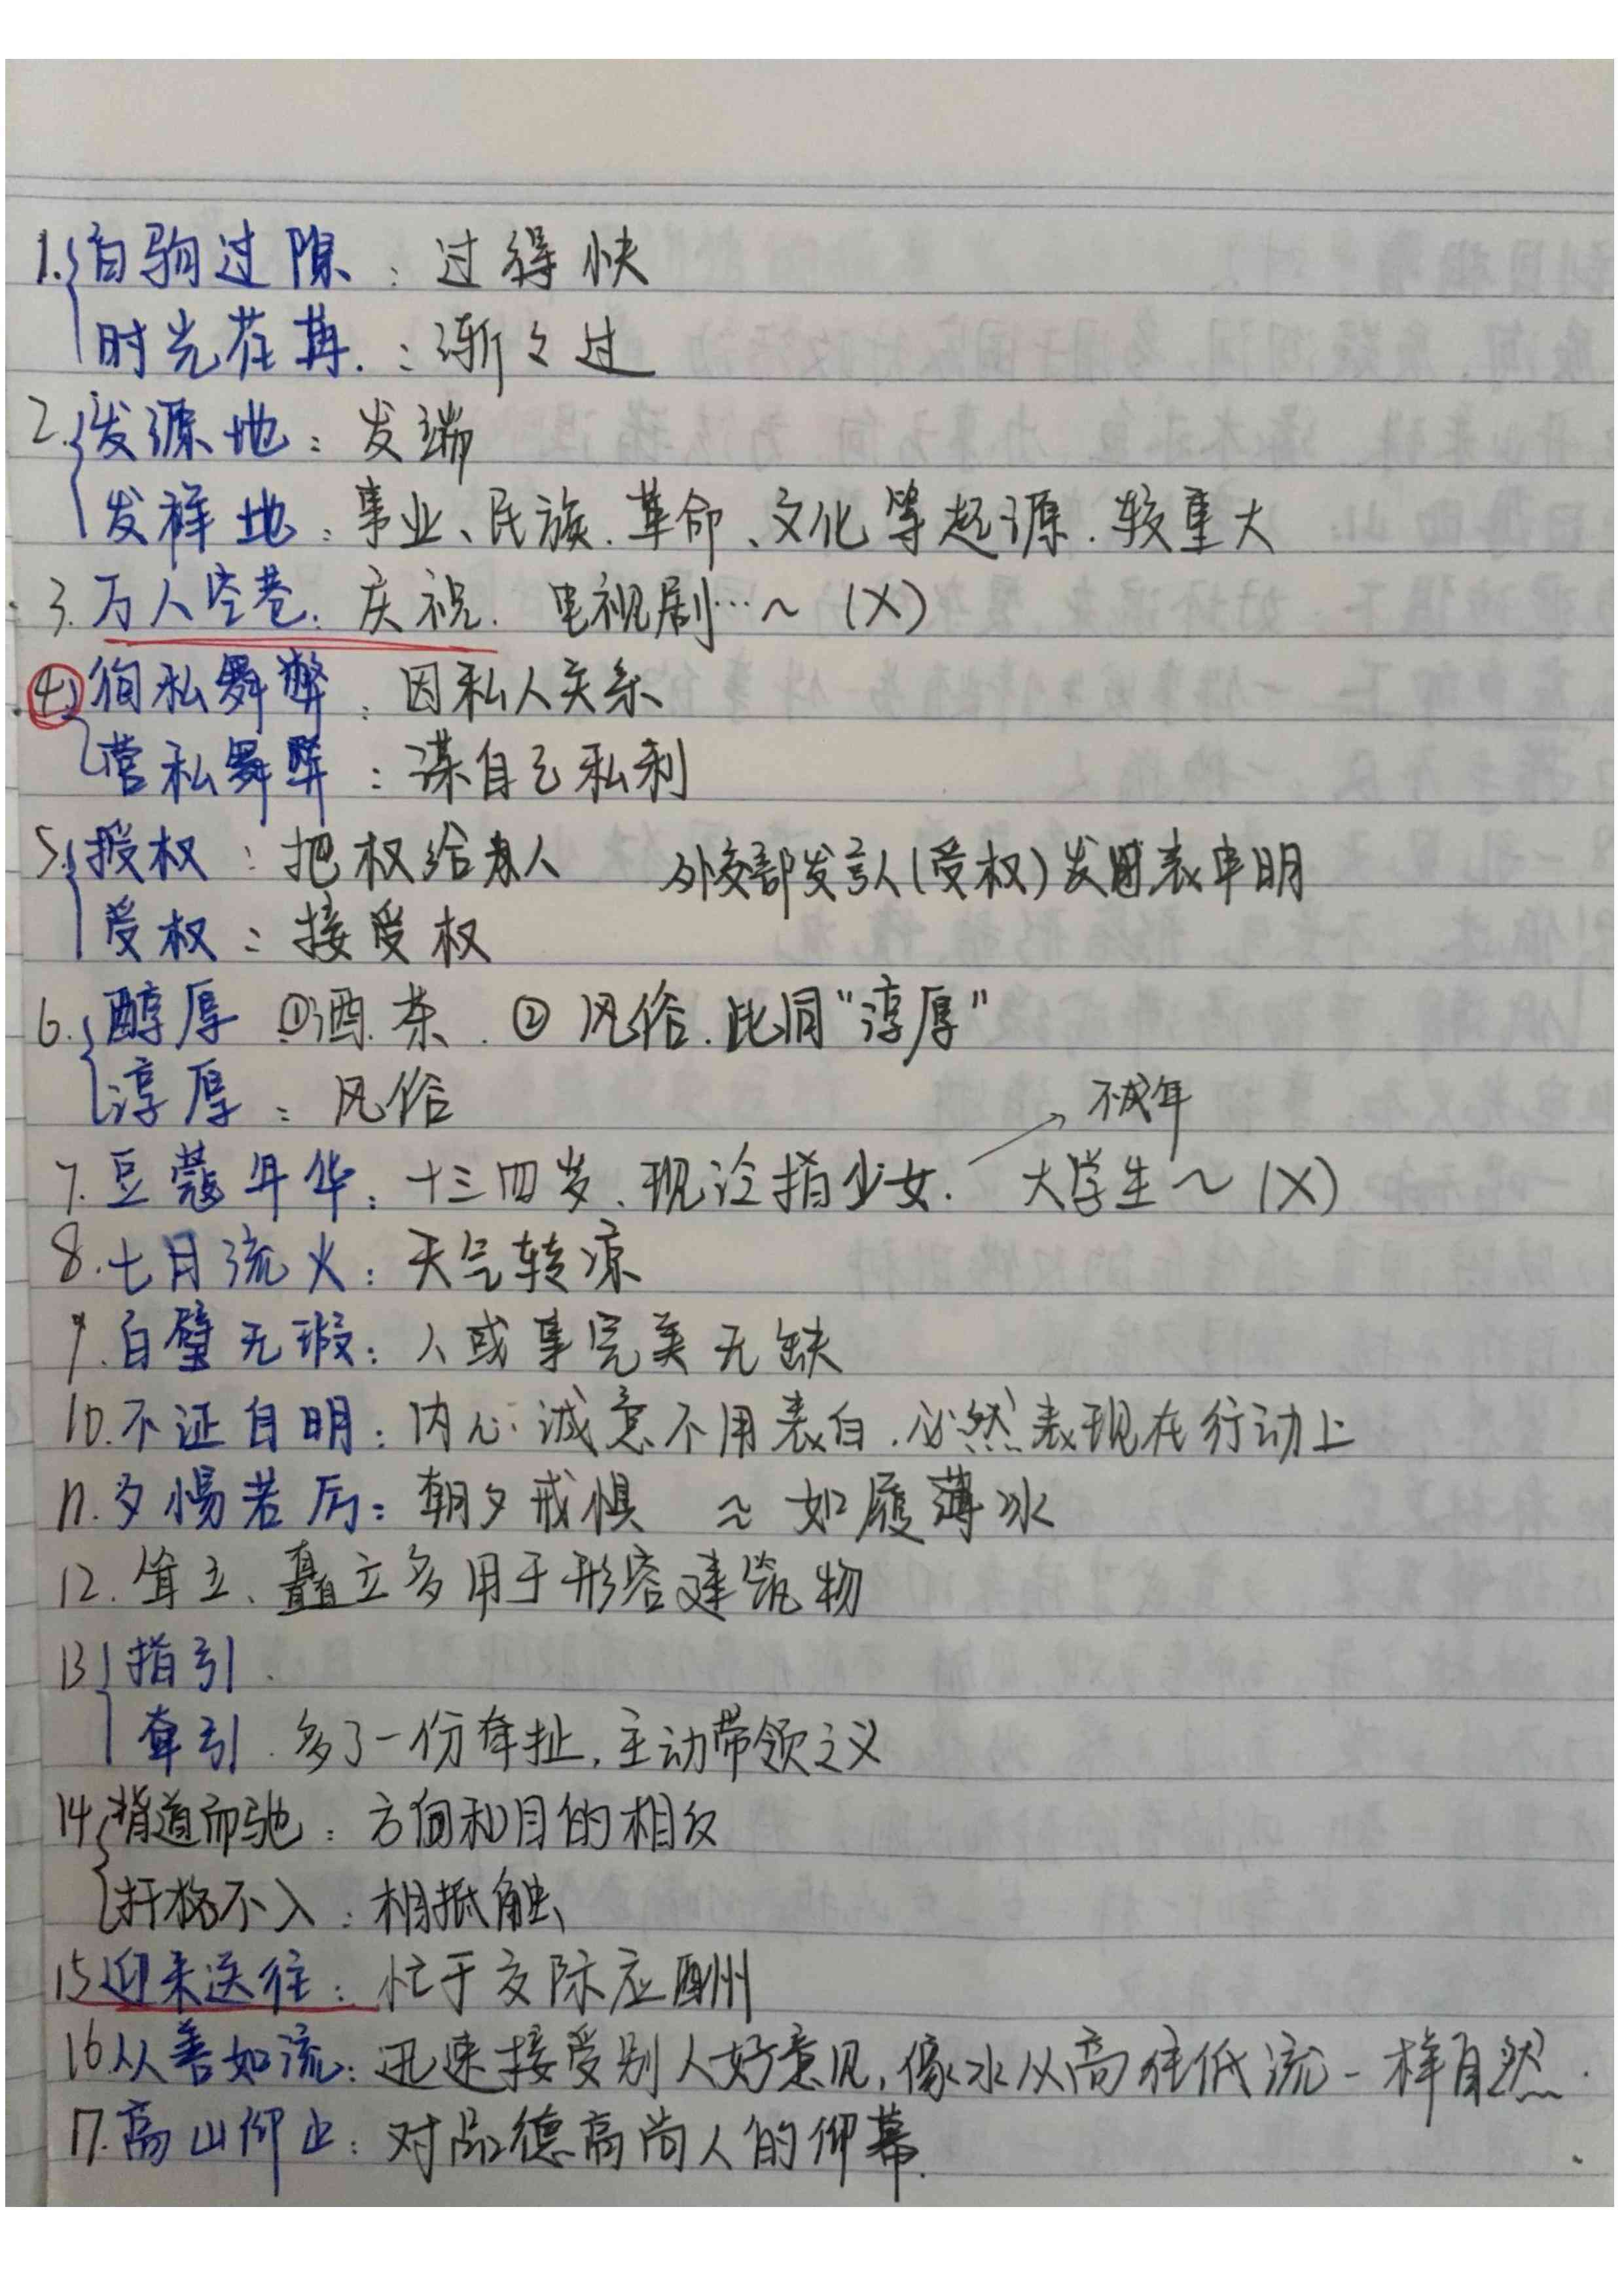 1.{白驹过隙：过得快
时光荏苒.：渐々过
2.{发源地：发端
发祥地：事业、民族.革命、文化等起源.较重大
3.万人空巷.庆祝. 电视剧…～（X）
④{徇私舞弊：因私人关系
营私舞弊：谋自己私利
5.{授权：把权给别人 外交部发言人(受权)发表申明
受权：接受权
6.{醇厚 ①酒.茶.②风俗.此同“淳厚”
淳厚：风俗
不成年
7.豆蔻年华：十三四岁.现泛指少女. 大学生～（X）
8.七月流火：天气转凉
9.白璧无瑕：人或事完美无缺
10.不证自明：内心诚意不用表白.必然表现在行动上
11.夕惕若厉：朝夕戒惧 ≈ 如履薄冰
12.耸立、矗立多用于形容建筑物
13{指引.
牵引.多了一份牵扯,主动带领之义
14{背道而驰：方向和目的相反
扞格不入：相抵触
15迎来送往：忙于交际应酬
16从善如流：迅速接受别人好意见,像水从高往低流一样自然.
17.高山仰止：对品德高尚人的仰慕.